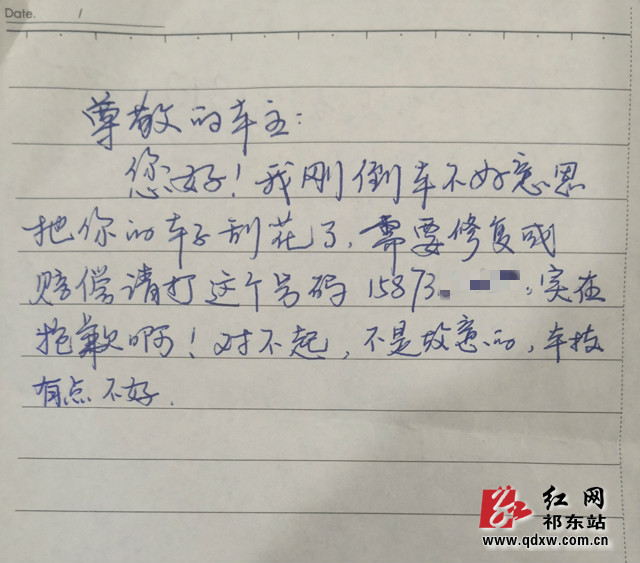 Date.    /
尊敬的车主:
您好!我刚倒车不好意思
把你的车子刮花了,需要修复或
赔偿请打这个号码 15873 ,实在
抱歉啊!对不起,不是故意的,车技
有点不好.
红网
祁东站
www.qdxw.com.cn